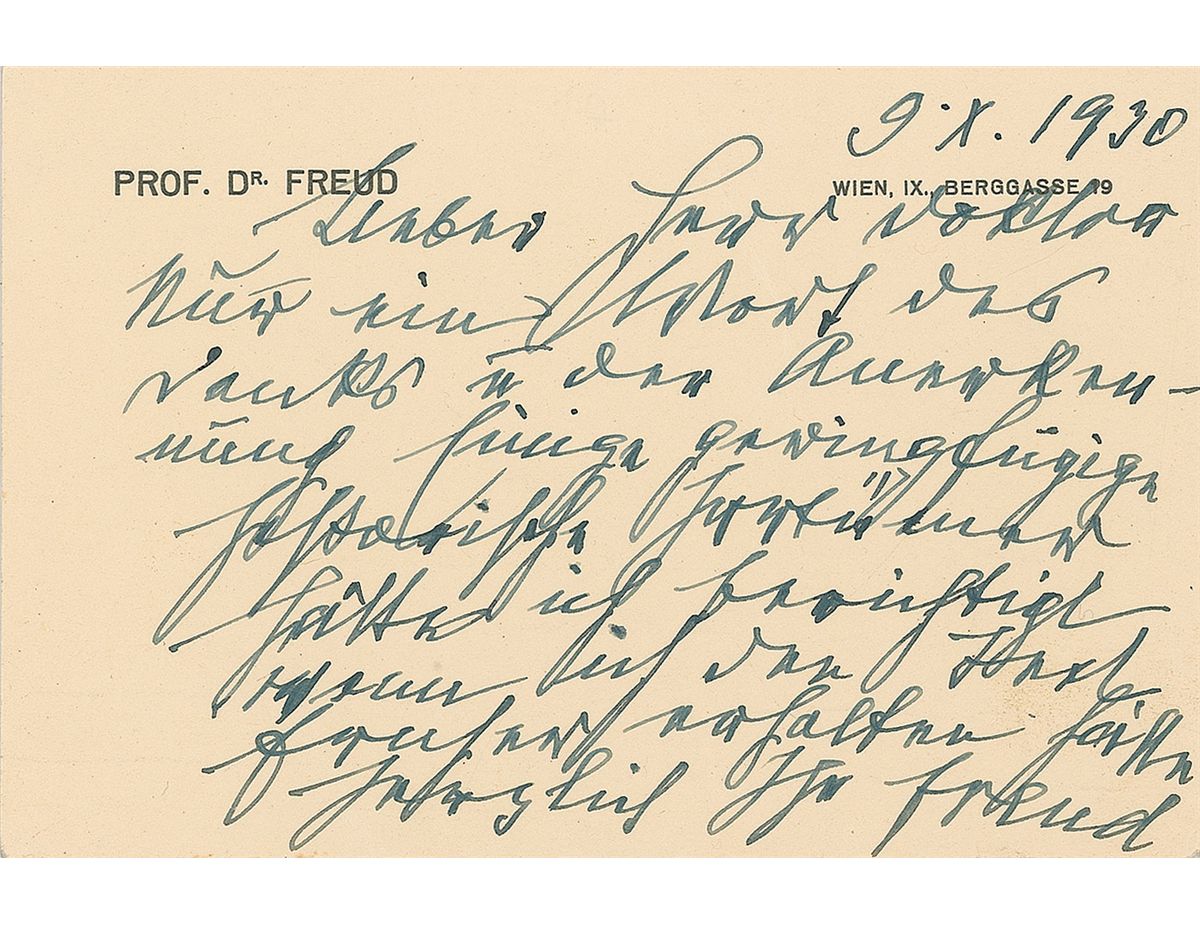 9.X.1930
PROF. DR. FREUD WIEN, IX., BERGGASSE 19
Lieber Herr Doktor
Nur ein Wort des
Danks u der Anerken-
nung Einige geringfügige
historische Irrtümer
hätte ich berichtigt
wenn ich den Text
früher erhalten hätte
Herzlich Ihr Freud